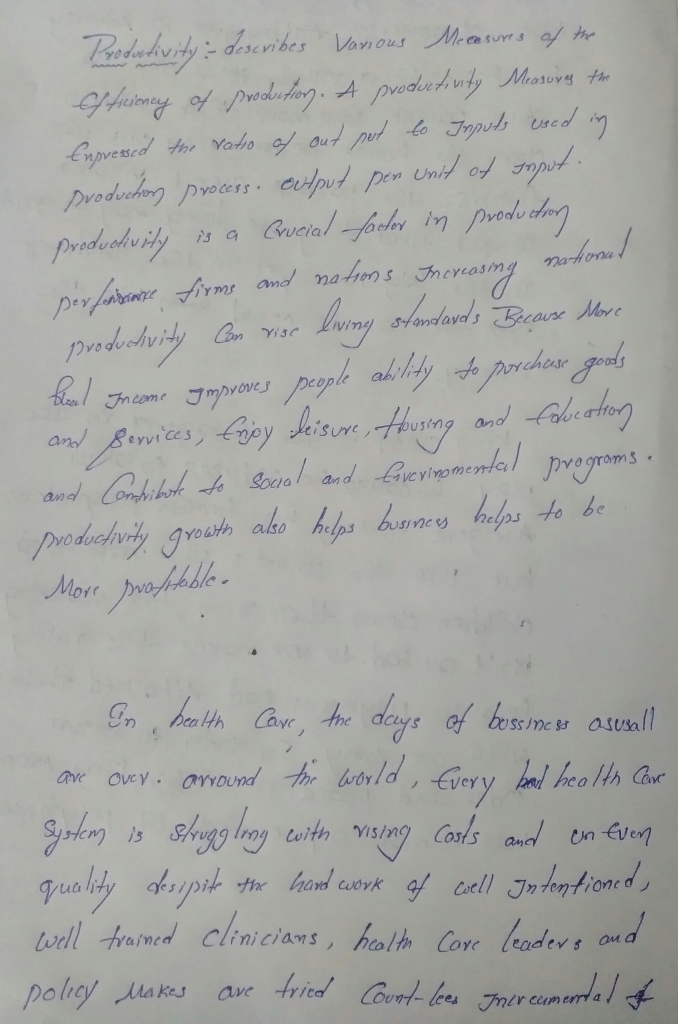 Productivity :- describes Various Measures of the
Efficiency of production. A productivity Measures the
Expressed the ratio of out put to Inputs used in
production process. output per unit of Input.
productivity is a Crucial factor in production
performance firms and nations Increasing national
productivity Can rise living standards Because More
Real Income Improves people ability to purchase goods
and Services, Enjoy leisure, Housing and Education
and Contribute to Social and Envirinomental programs.
productivity growth also helps business helps to be
More profitable.
In health Care, the days of bussiness asusall
are over. arround the world, Every health Care
System is struggling with rising Costs and un Even
quality desipite the hard work of well Intentioned,
well trained clinicians, health Care leaders and
policy Makes are tried Count-lees Increamental